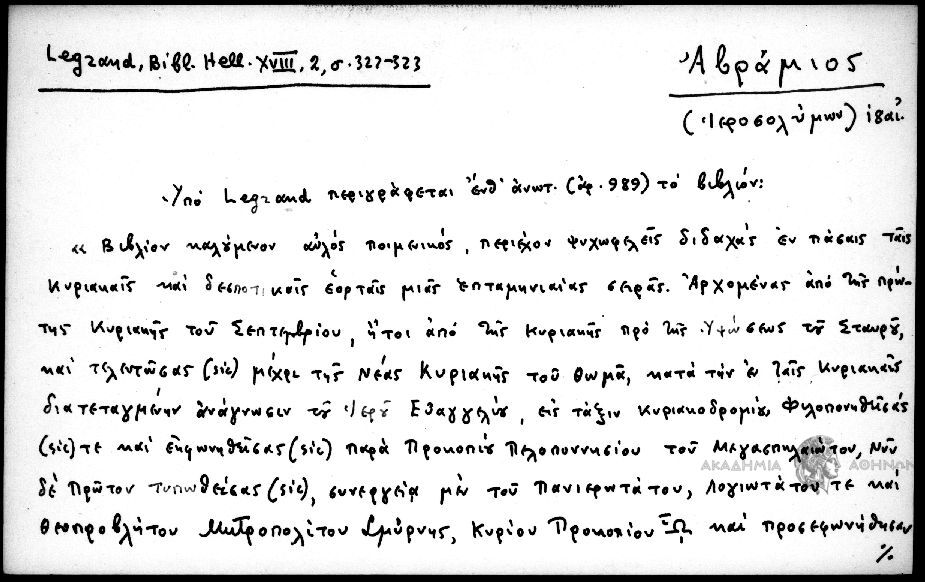 Legrand, Bibl. Hell. XVIII, 2, σ. 322-323
Ἀβράμιος
(Ἱεροσολύμων) ἰδαί.
Ὑπό Legrand περιγράφεται ἔνθ' ἀνωτ. (ἀρ. 989) τό βιβλίον:
« Βιβλίον καλούμενον αὐλός ποιμενικός, περιέχον ψυχωφελεῖς διδαχάς ἐν πάσαις ταῖς
Κυριακαῖς καί δεσποτικαῖς ἑορταῖς μιᾶς ἑπταμηνιαίας σειρᾶς. Ἀρχομένας ἀπό τῆς πρώ-
της Κυριακῆς τοῦ Σεπτεμβρίου, ἤτοι ἀπό τῆς Κυριακῆς πρό τῆς Ὑψώσεως τοῦ Σταυροῦ,
καί τελευτῶσας (sic) μέχρι τῆς Νέας Κυριακῆς τοῦ Θωμᾶ, κατά τήν ἐν ταῖς Κυριακαῖς
διατεταγμένην ἀνάγνωσιν τοῦ Ἱεροῦ Εὐαγγελίου, εἰς τάξιν Κυριακοδρομίου, Φιλοπονηθεῖσάς
(sic) τε καί ἐκφωνηθεῖσας (sic) παρά Προκοπίου Πελοποννησίου τοῦ Μεγασπηλαιώτου, Νῦν
δέ Πρῶτον τυπωθείσας (sic), συνεργείᾳ μέν τοῦ Πανιερωτάτου, Λογιωτάτου τε καί
Θεοπροβλήτου Μητροπολίτου Σμύρνης, Κυρίου Προκοπίου καί προσεφωνήθησαν
%
ΑΚΑΔΗΜΙΑ ΑΘΗΝΩΝ